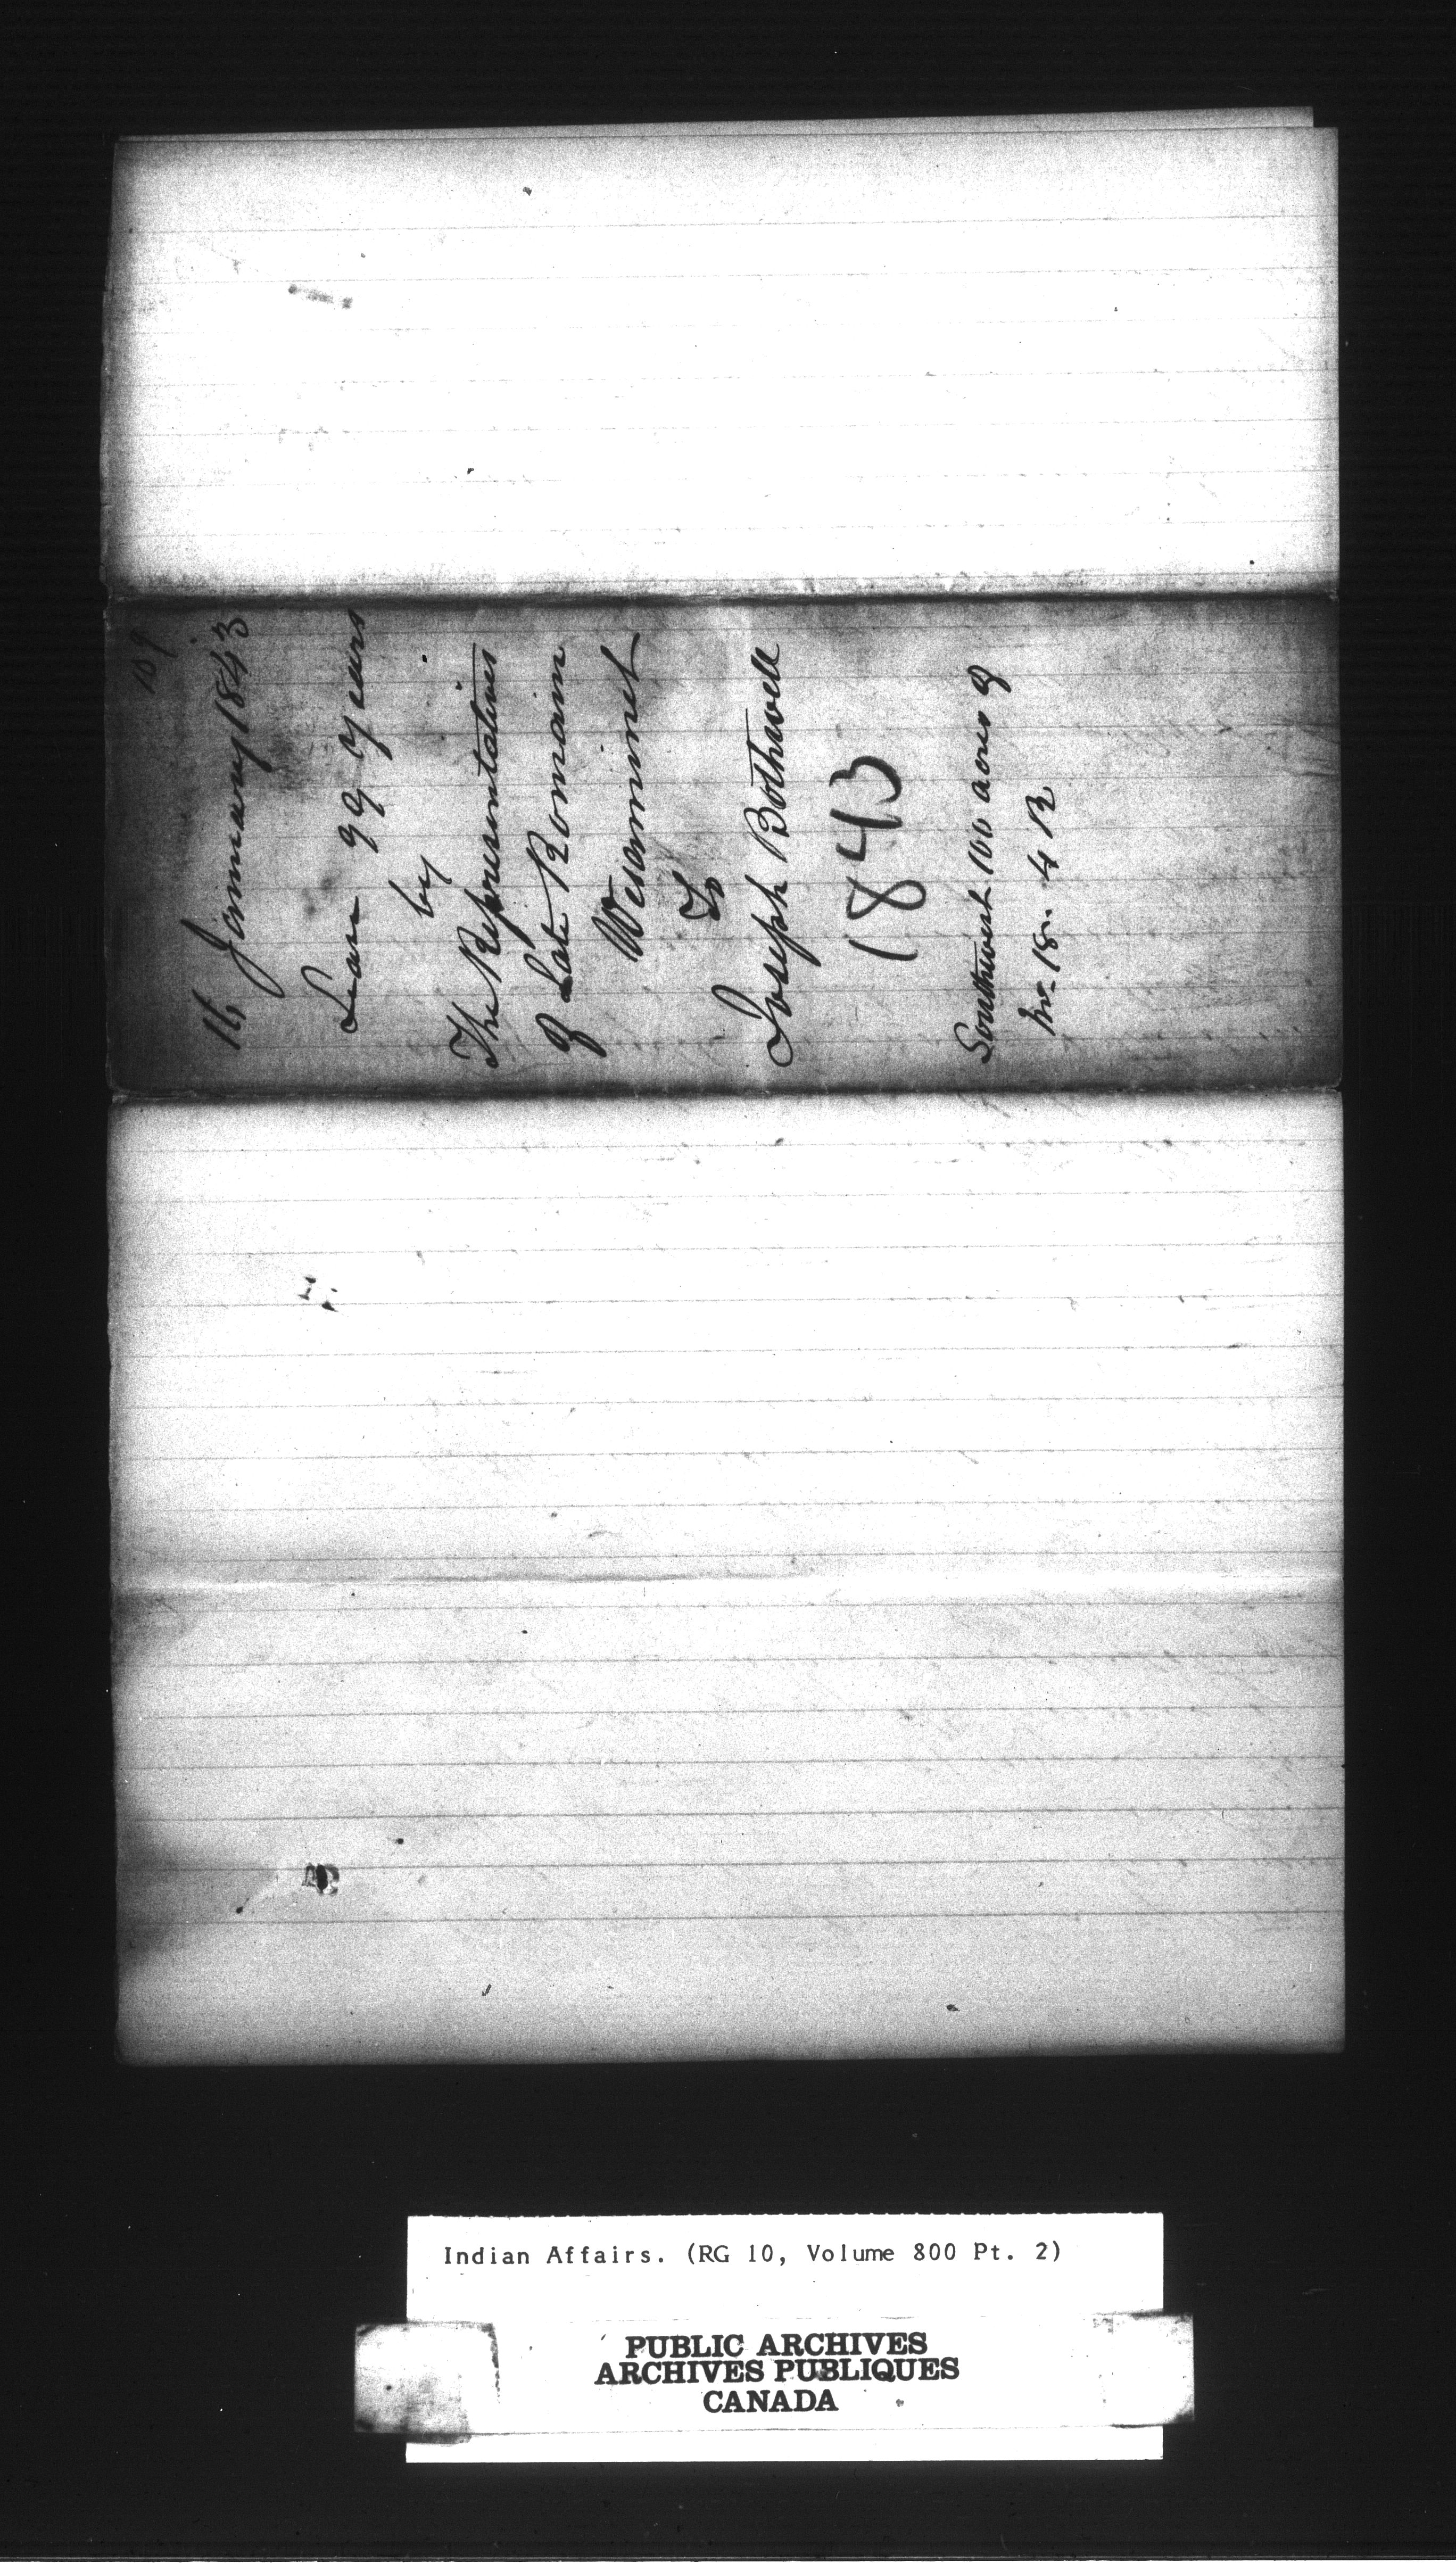 109
16 January 1843
Lease 99 Years
by
The Representatives
of Late Romain
Wesaminet
To
Joseph Bothwell
1843
Southwest 100 acres of
No. 18. 4 R
Indian Affairs. (RG 10, Volume 800 Pt. 2)
PUBLIC ARCHIVES
ARCHIVES PUBLIQUES
CANADA